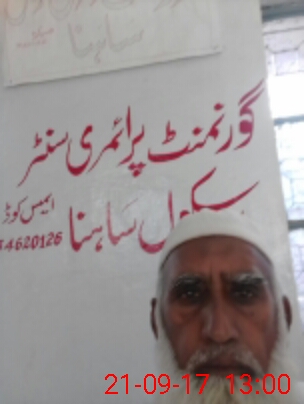 ساہنا
گورنمنٹ پرائمری سنٹر
سکول ساہنا
ایمس کوڈ
34620126
21-09-17 13:00